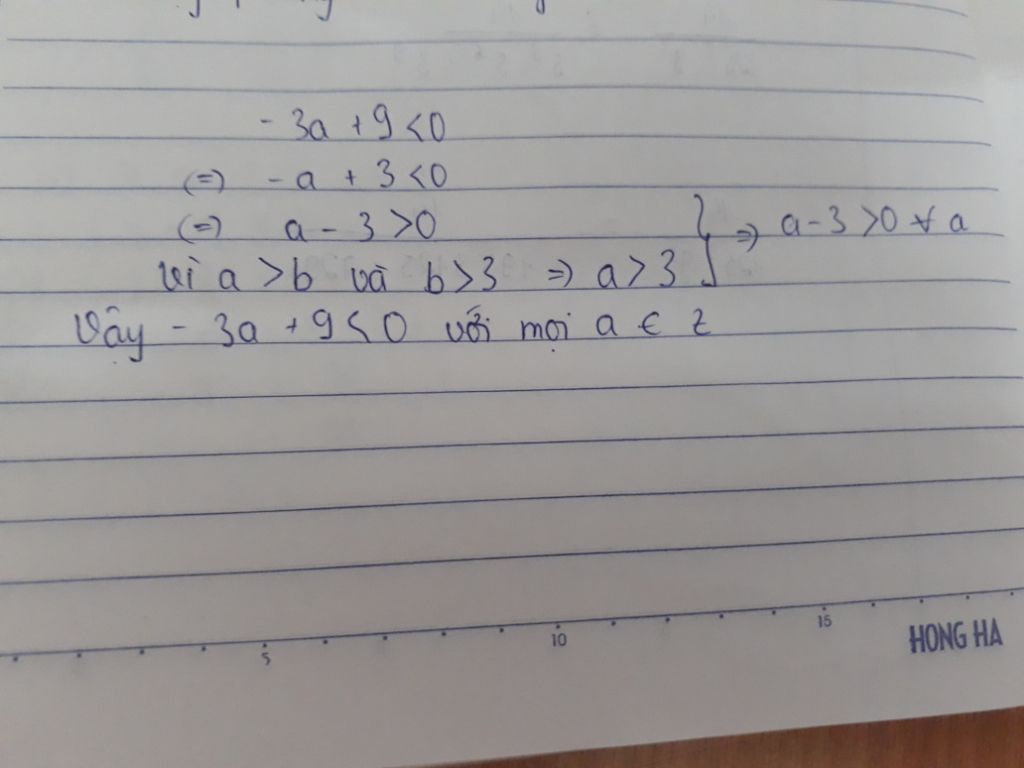 - 3a + 9 < 0
(=) - a + 3 < 0
(=) a - 3 > 0
vì a > b và b > 3 => a > 3 } => a - 3 > 0 ∀ a
Vậy - 3a + 9 < 0 với mọi a ∈ z
5 10 15
HONG HA